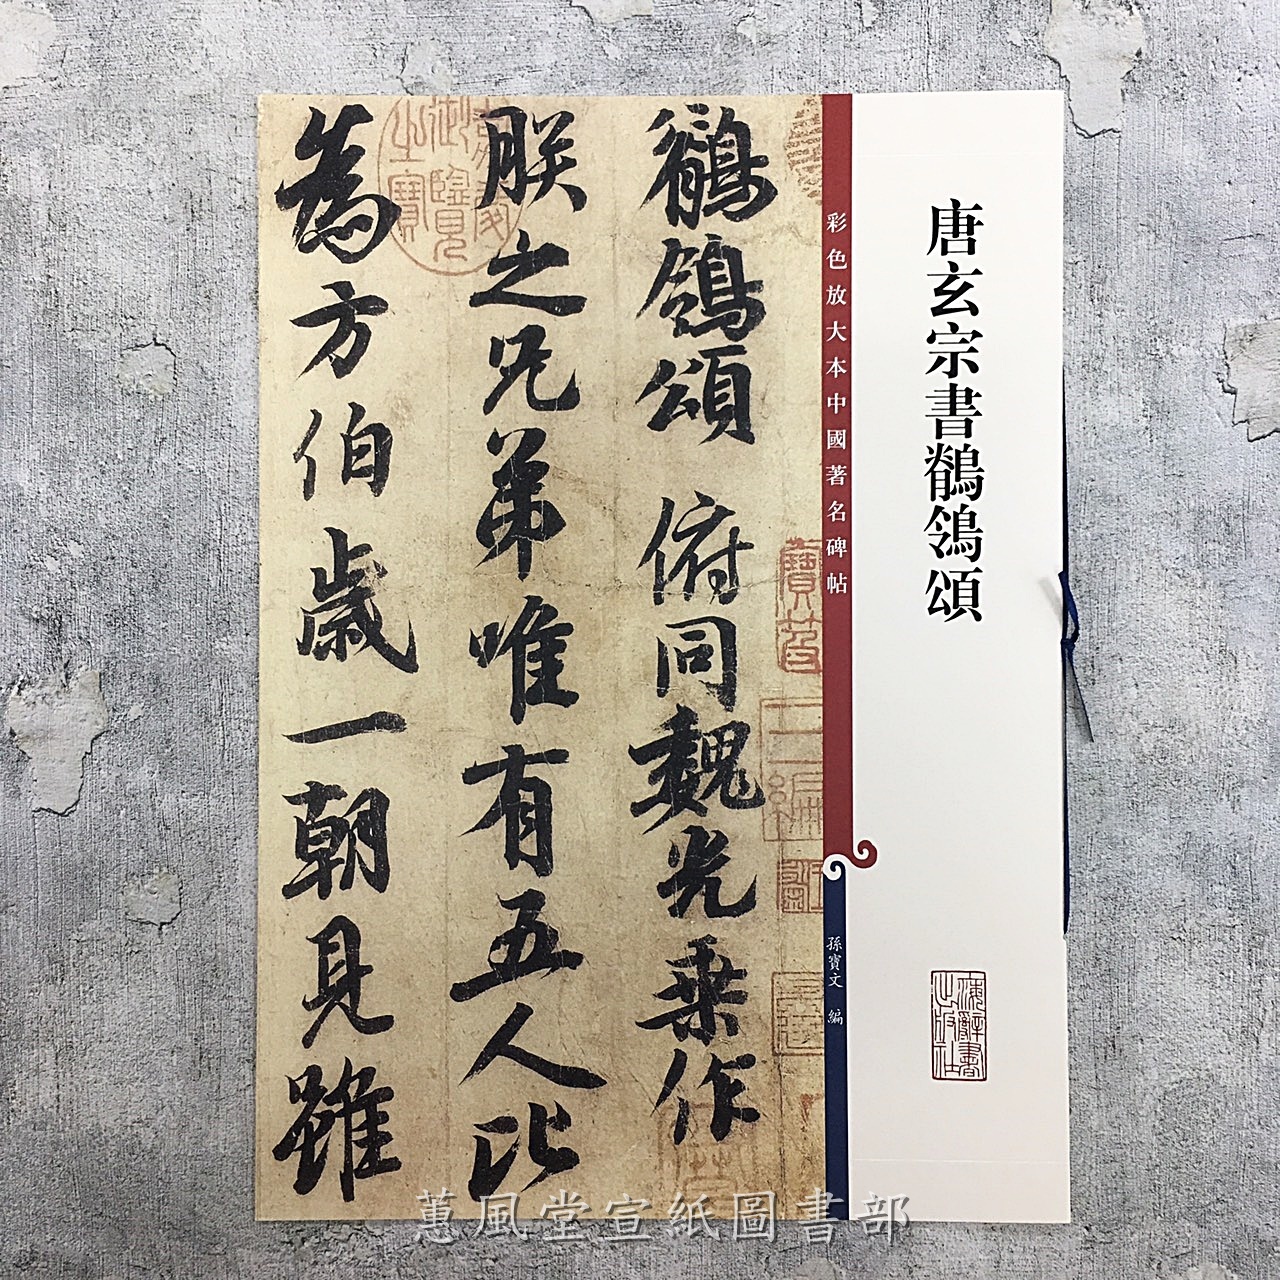 唐玄宗書鶺鴒頌
海辭書出版社
彩色放大本中國著名碑帖
孫寶文 編
鶺鴒頌 俯同魏光乗作
朕之兄弟唯有五人比
為方伯歲一朝見雖
御覽之寶
蕙風堂宣紙圖書部